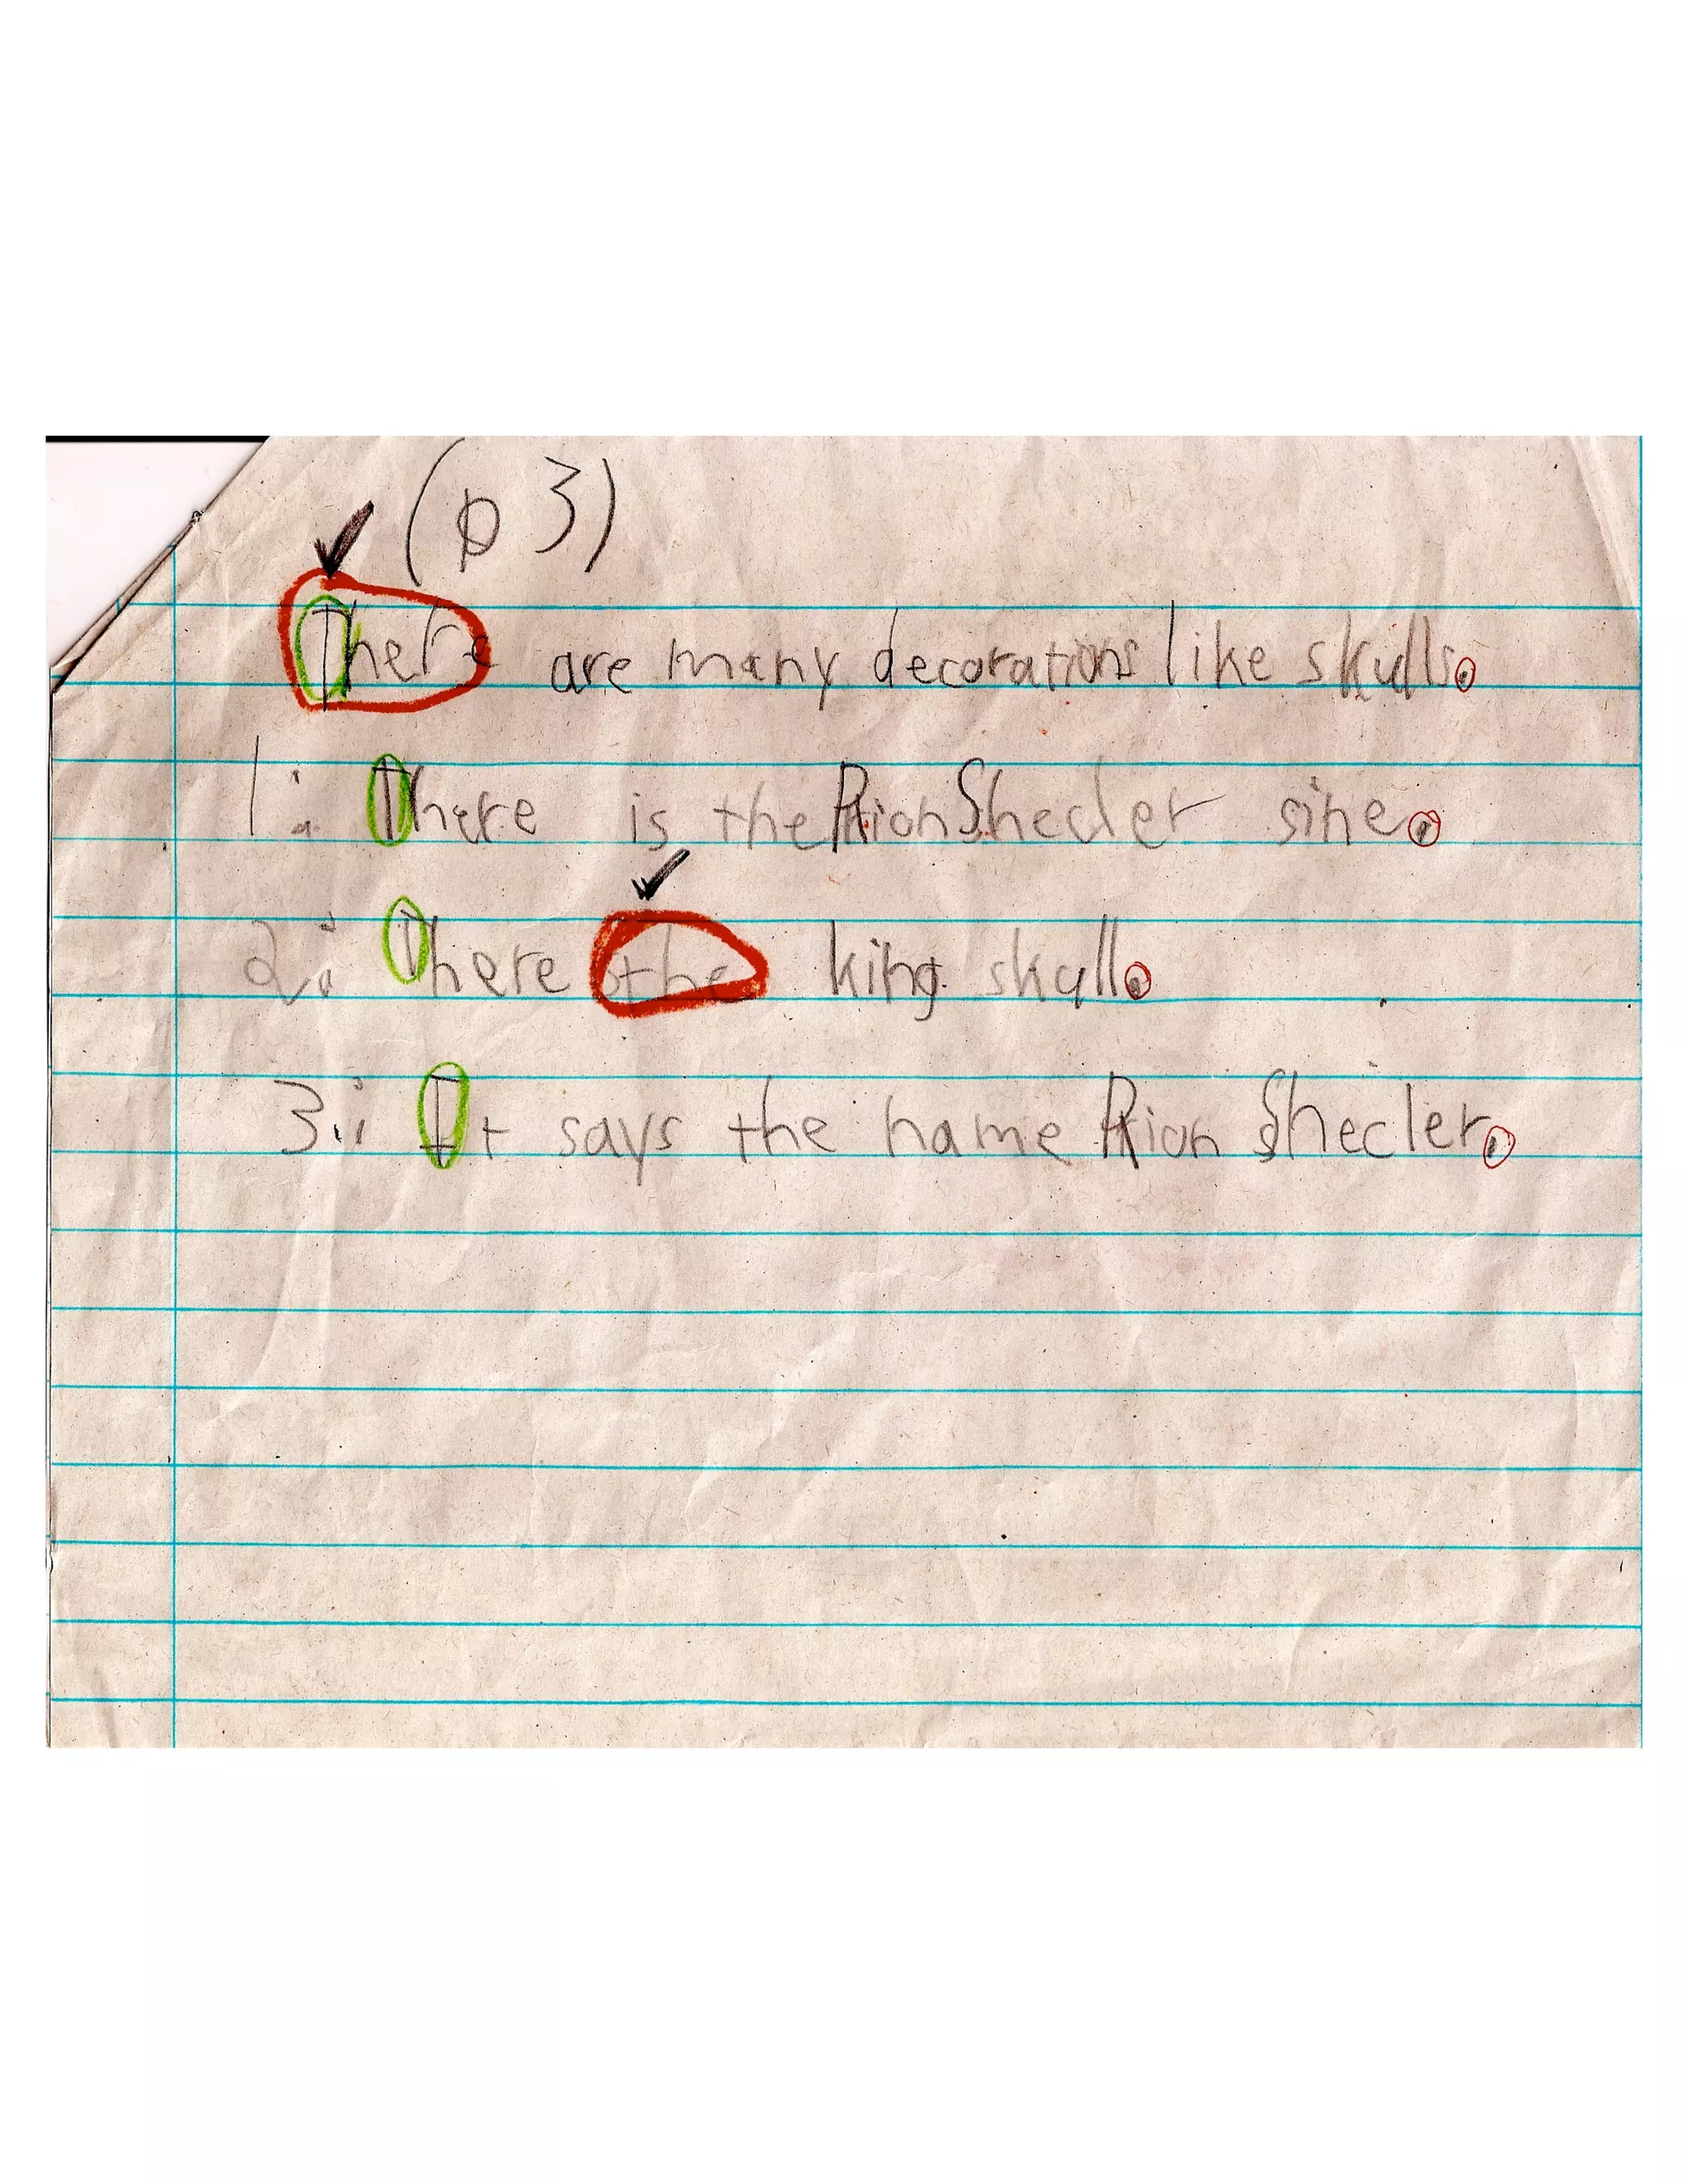 (p 3)
There are many decorations like skulls.
1: There is the Rion Shecler sine.
2: There the king skull.
3: It says the name Rion Shecler.